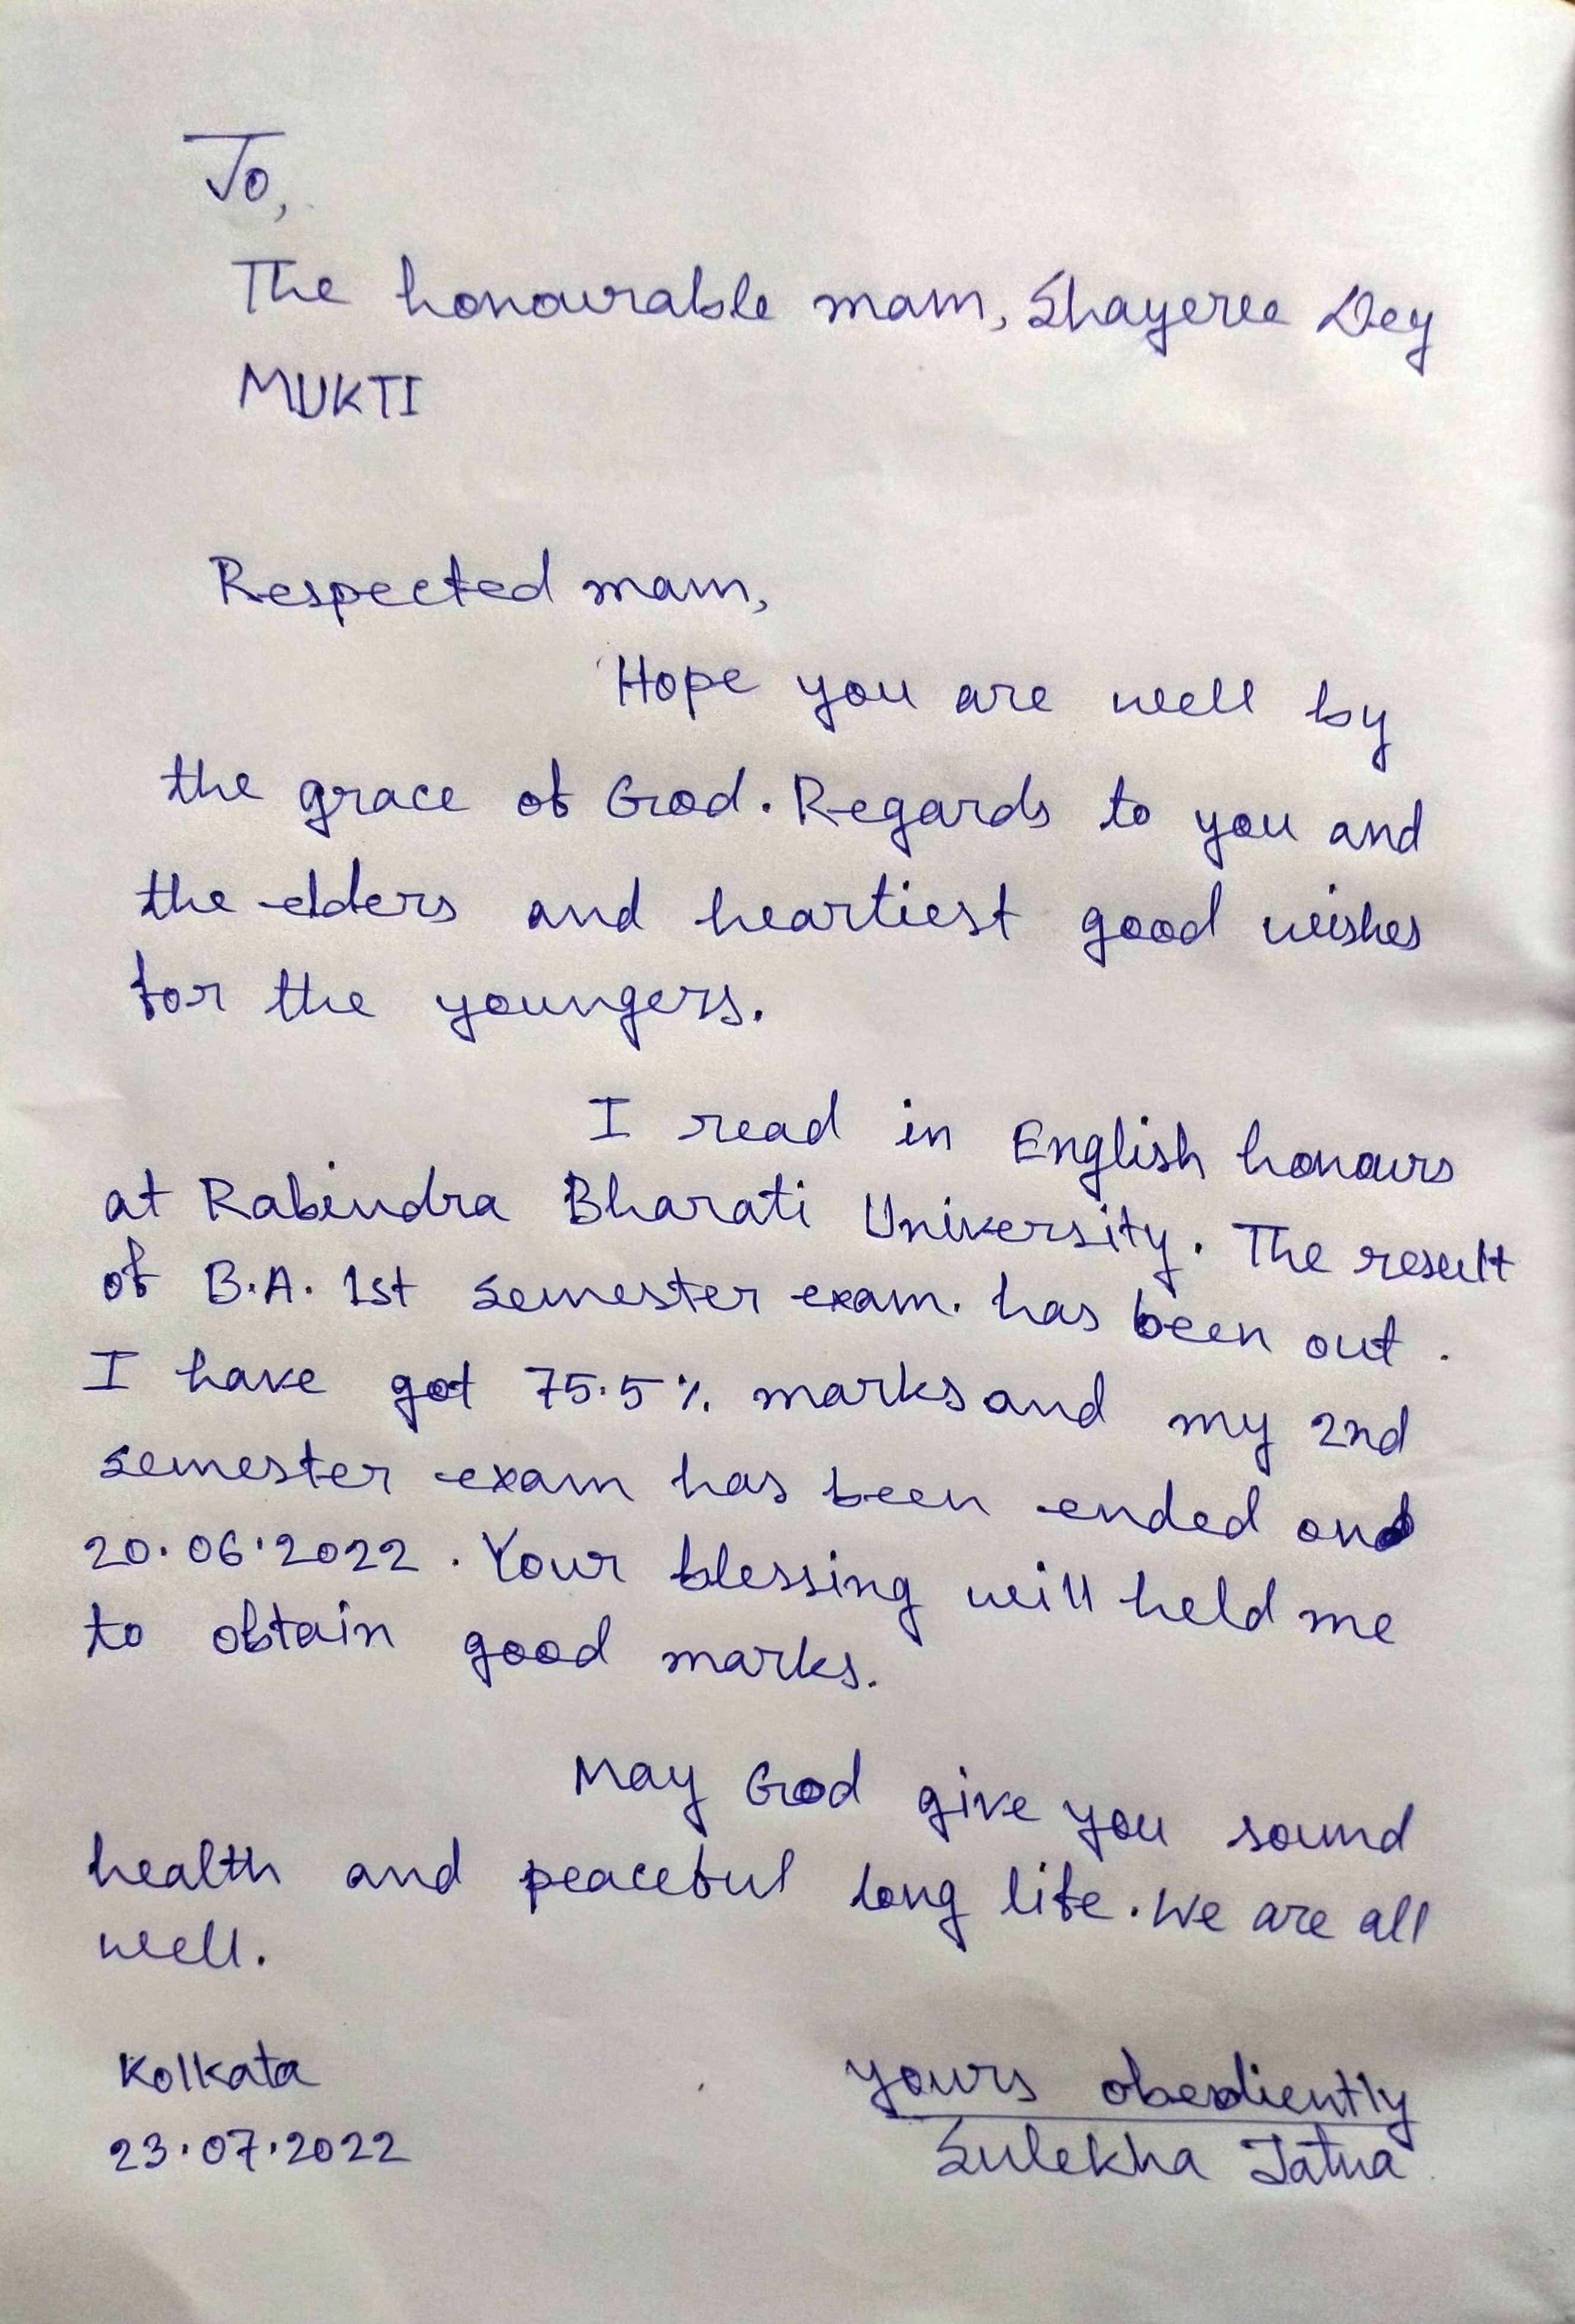 To,
The honourable mam, Shayeree Dey
MUKTI
Respected mam,
Hope you are well by
the grace of God. Regards to you and
the elders and heartiest good wishes
for the youngers.
I read in English honours
at Rabindra Bharati University. The result
of B.A. 1st semester exam. has been out.
I have got 75.5% marks and my 2nd
semester exam has been ended on
20.06.2022. Your blessing will held me
to obtain good marks.
May God give you sound
health and peaceful long life. We are all
well.
Kolkata
23.07.2022
yours obediently
Sulekha Jatua